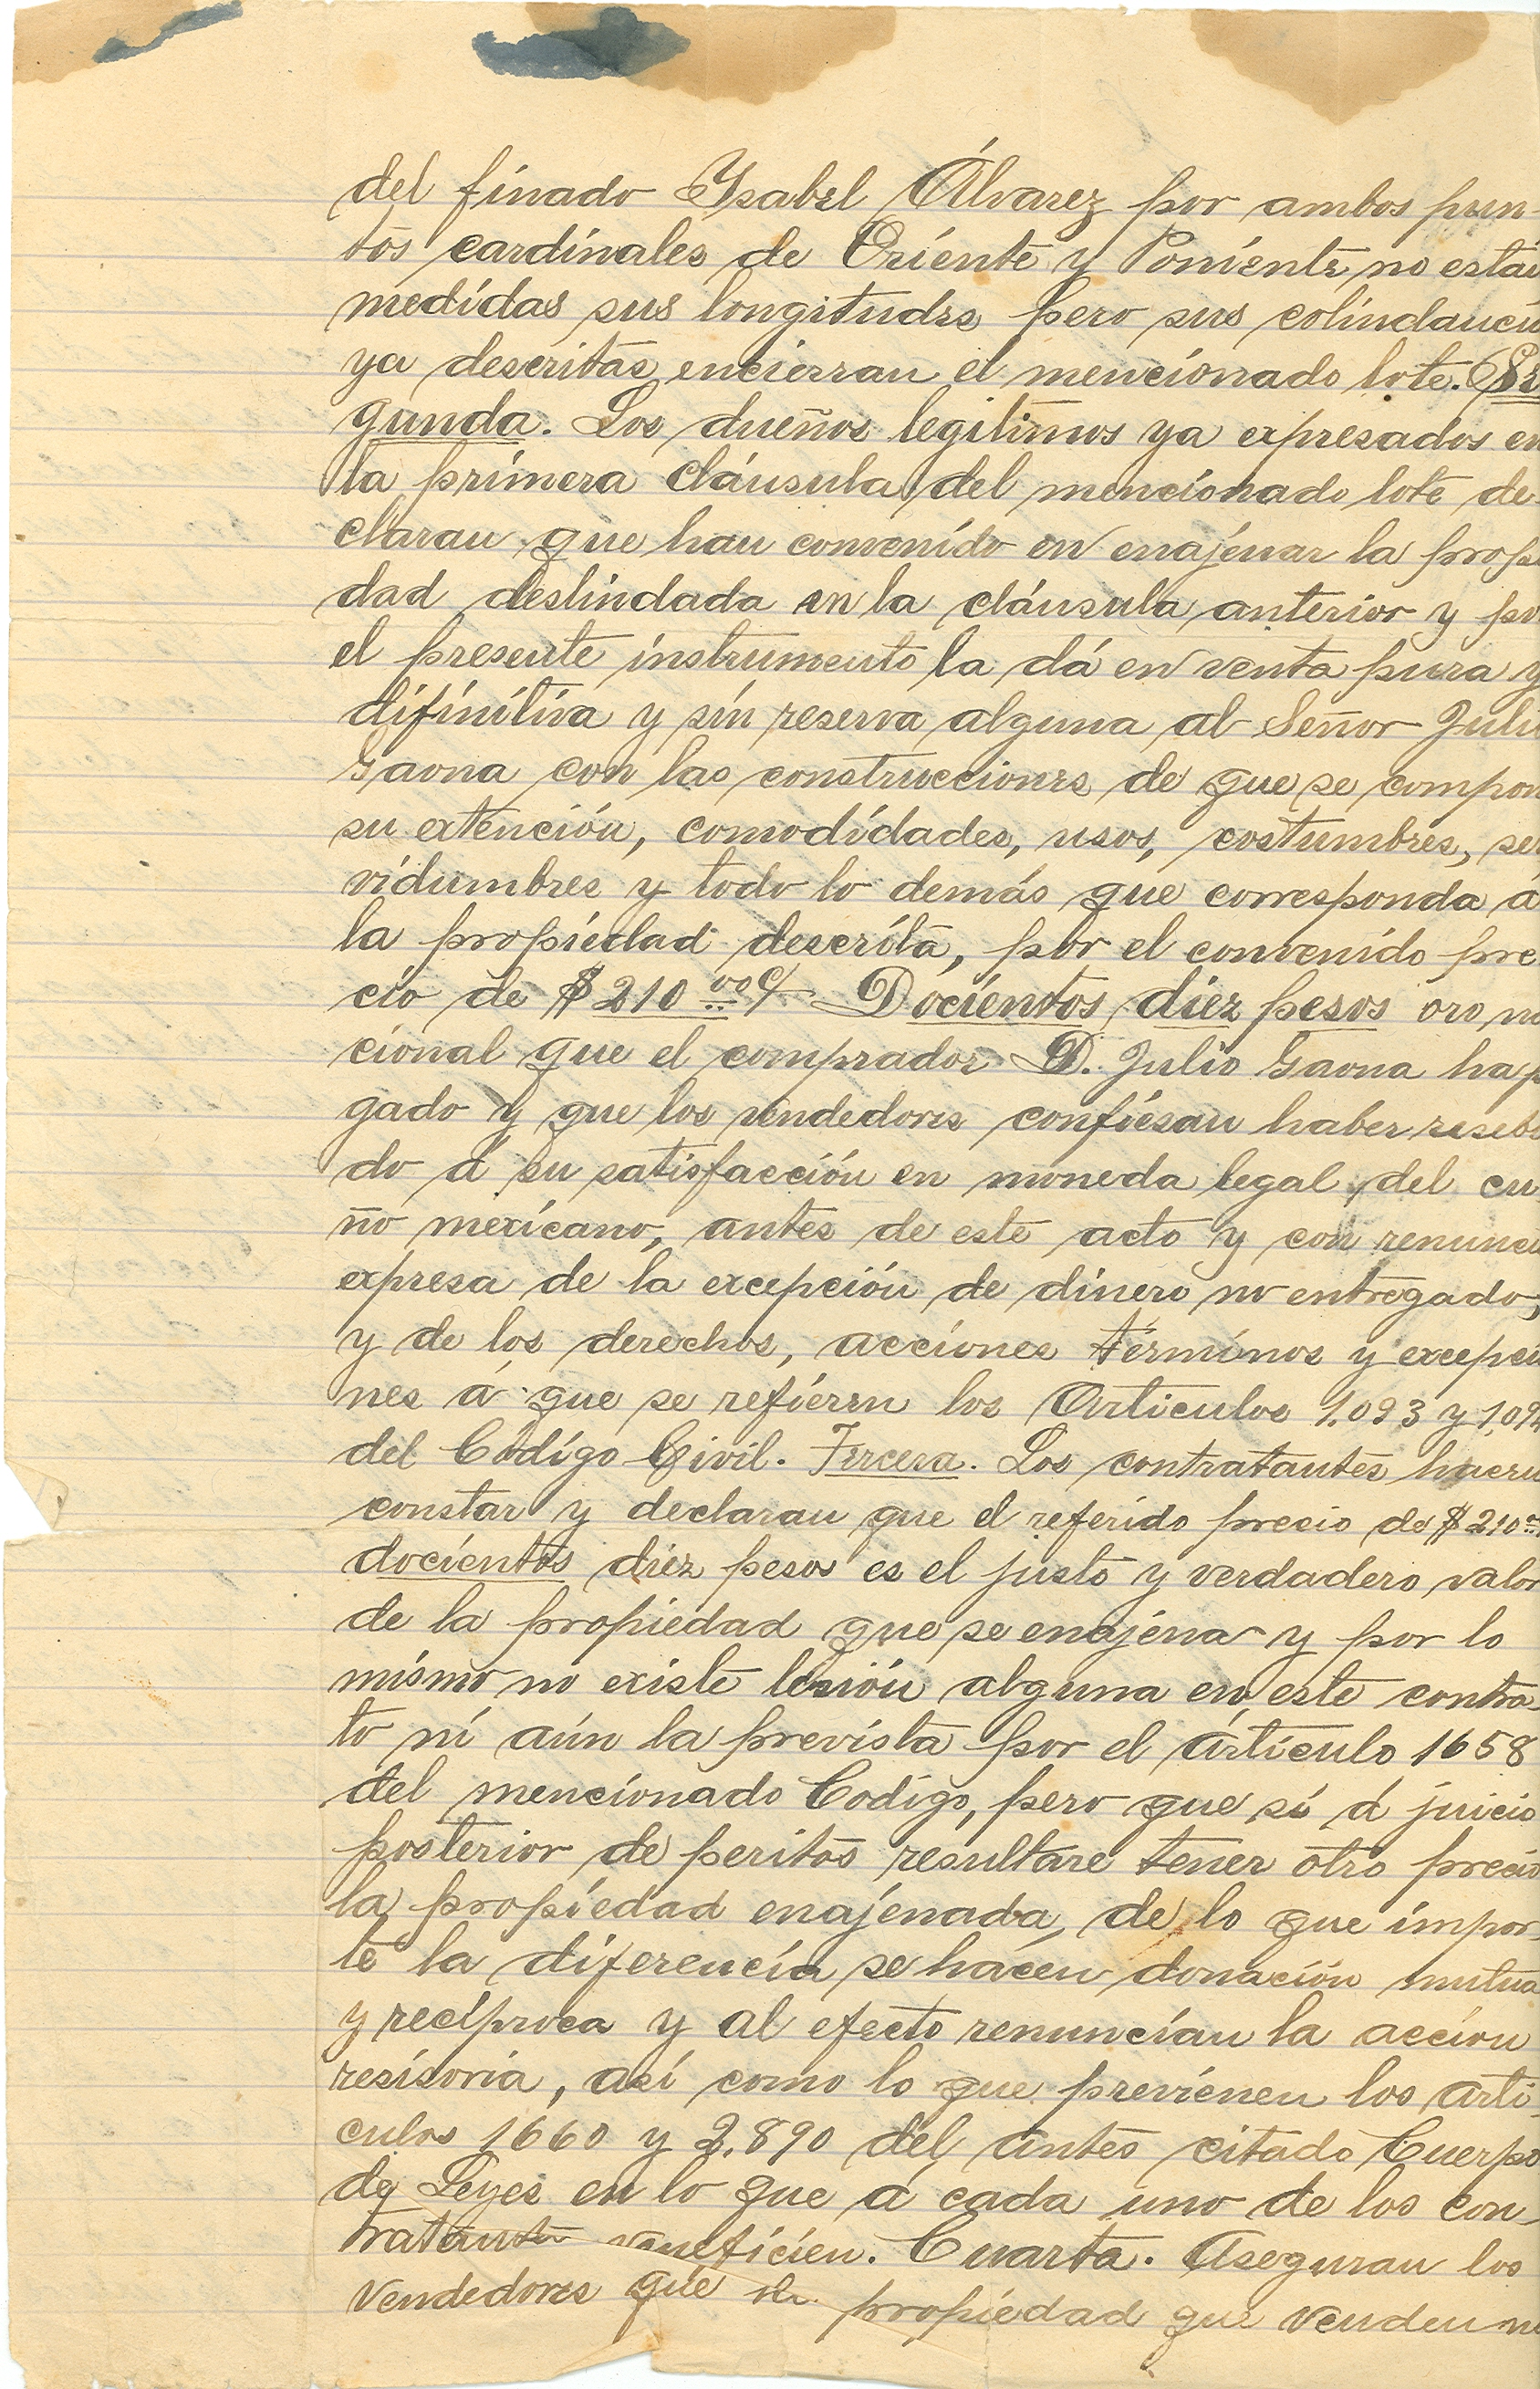 del finado Ysabel Álvarez por ambos pun-
tos cardinales de Oriente y Poniente, no están
medidas sus longitudes pero sus colindanci
ya descritas encierran el mencionado lote. Se
gunda. Los dueños legitimos ya expresados en
la primera cláusula del mencionado lote de-
claran que han convenido en enajenar la propi
dad deslindada en la cláusula anterior y po
el presente instrumento la dá en venta pura y
difinitiva y sin reserva alguna al Señor Juli
Gaona con las construcciones de que se compon
su extención, comodidades, usos, costumbres, ser
vidumbres y todo lo demás que corresponda á
la propiedad descrita, por el convenido pre
cio de $ 210 00 ¢ Docientos diez pesos oro na
cional que el comprador D. Julio Gaona ha p
gado y que los vendedores confiesan haber resebi
do á su satisfacción en moneda legal, del cu
ño mexicano, antes de este acto y con renunci
expresa de la excepción de dinero no entregado,
y de los derechos, acciones términos y excepci
nes á que se refieren los Articulos 1.093 y 1,09
del Código Civil. Tercera. Los contratantes hacen
constar y declaran que el referido precio de $ 210 00
docientos diez pesos es el justo y verdadero valor
de la propiedad que se enajena y por lo
mismo no existe lesión alguna en este contra-
to ni aún la prevista por el artículo 1658
del mencionado Codigo, pero que si á juicio
posterior de peritos resultare tener otro precio
la propiedad enajenada, de lo que impor-
te la diferencia se hacen donación mutua
y recíproca y al efecto renuncian la acción
resisoria, así como lo que previenen los arti
culos 1660 y 2.890 del antes citado Cuerpo
de Leyes en lo que á cada uno de los con-
tratantes veneficien. Cuarta. Aseguran los
vendedores que la propiedad que venden no